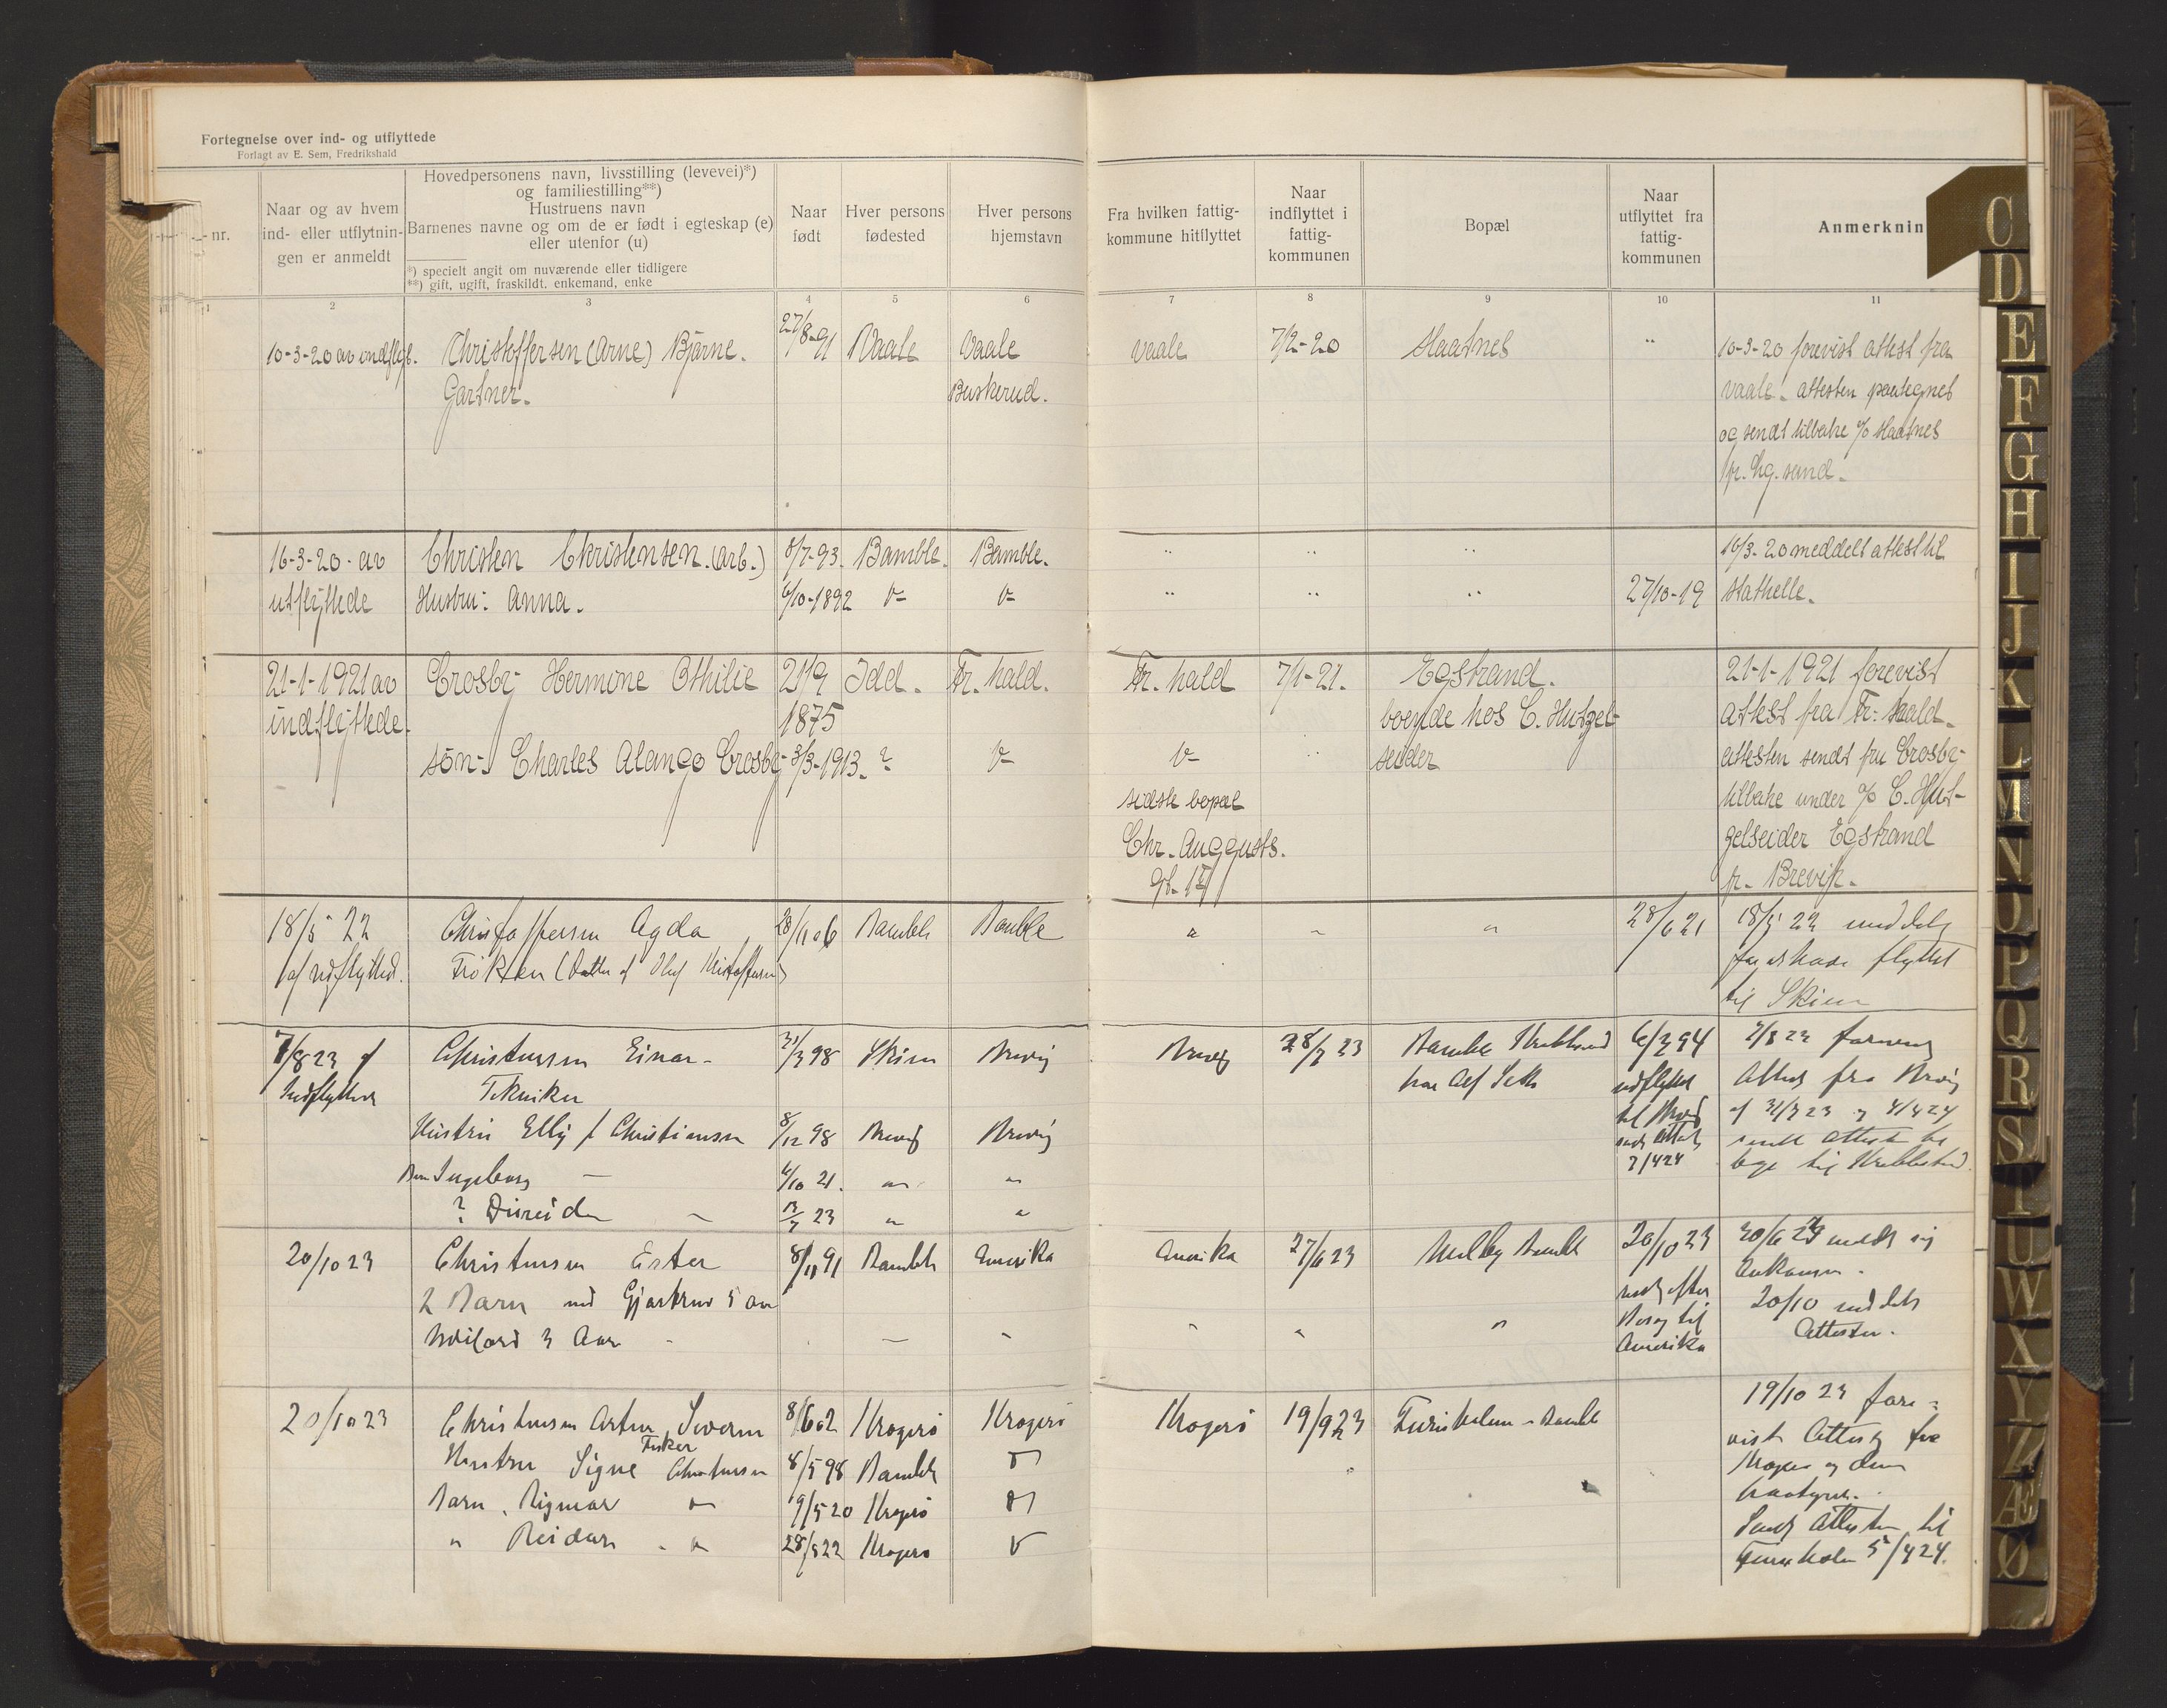 Fortegnelse over ind- og utflyttede
Forlagt av E. Sem, Fredrikshald
nr.
Naar og av hvem ind- eller utflytnin-gen er anmeldt
Hovedpersonens navn, livsstilling (levevei)*)
og familiestilling**)
Hustruens navn
Barnenes navne og om de er født i egteskap (e)
eller utenfor (u)
*) specielt angit om nuværende eller tidligere
**) gift, ugift, fraskildt, enkemand, enke
Naar født
Hver persons fødested
Hver persons hjemstavn
Fra hvilken fattig-kommune hitflyttet
Naar indflyttet i fattig-kommunen
Bopæl
Naar utflyttet fra fattig-kommunen
Anmerknin
1 2 3 4 5 6 7 8 9 10 11
10-3-20 av indflyt. Christoffersen (Arne) Bjarne. 27/8-91 Vaale Vaale Vaale 7/2-20 Staatnes " 10-3-20 forevist attest fra
Gartner. Buskerud. Vaale. attesten paategnet
og sendt tilbake % Staatnes
pr. Lg.sund.
16-3-20. av Christen Christensen. (arb.) 8/7-93. Bamble. Bamble. " " " 16/3-20 meddelt attest til
utflyttede Hustru: Anna. 6/10-1892 v- v- " " " 27/10-19 Stathelle.
21-1-1921 av Crosby Hermine Othilie 21/9 Idd. Fr. hald. Fr. hald 7/1-21. Egstrand. 21-1-1921 forevist
indflyttede. 1875 boende hos C. Hutzel- attest fra Fr. hald.
sön- Charles Alango Crosby- 3/3-1913. ? v- v- " seider attesten sendt fru Crosby-
sidste bopæl tilbake under % C. Hut-
Chr. Auggusts. zelseider Egstrand
gt. 17 pr. Brevik.
18/5 22 Christoffersen Agda 28/11 06 Bamble Bamble " " " 28/6 21 18/5 22 meddelt
af udflytted. Frøken (Datter af Oluf Kristoffersen) flyttet
til Skien
7/8 23 af Christensen Einar - 31/3 98 Skien Brevig Brevig 28/7 23 Bamble 7/8 23
Indflyttede Tekniker hos Alf udflyttet Attest fra Brevig
Hustru Elly f Christiansen 8/12 98 Brevig Brevig til Brevig
Barn Ingeborg - 4/10 21. " "
? - 13/7 23 " "
20/10 23 Christensen Ester 8/11 91 Bamble Amerika Amerika 27/6 23 Melby Bamble 20/10 23 meldt sig
2 Barn 5 aar Ankomsten.
3 Aar - - " " " " Besøg til 20/10 meddelt
Amerika Attester.
20/10 23 Christensen Artur Severin 8/6 02 Kragerø Kragerø Kragerø 19/9 23 Bamble 19/10 23 fore-
Fisker vist Attest fra
Hustru Signe Christensen 8/5 98 Bamble v Kragerø og
Barn. Rigmor " 19/5 20 Kragerø v
" Reidar - " 28/8 22 Kragerø v Sendt Attesten til
5/4 24.
C
D
E
F
G
H
I
J
K
L
M
N
O
P
Q
R
S
T
U
W
X
Y
Z
Æ
Ø